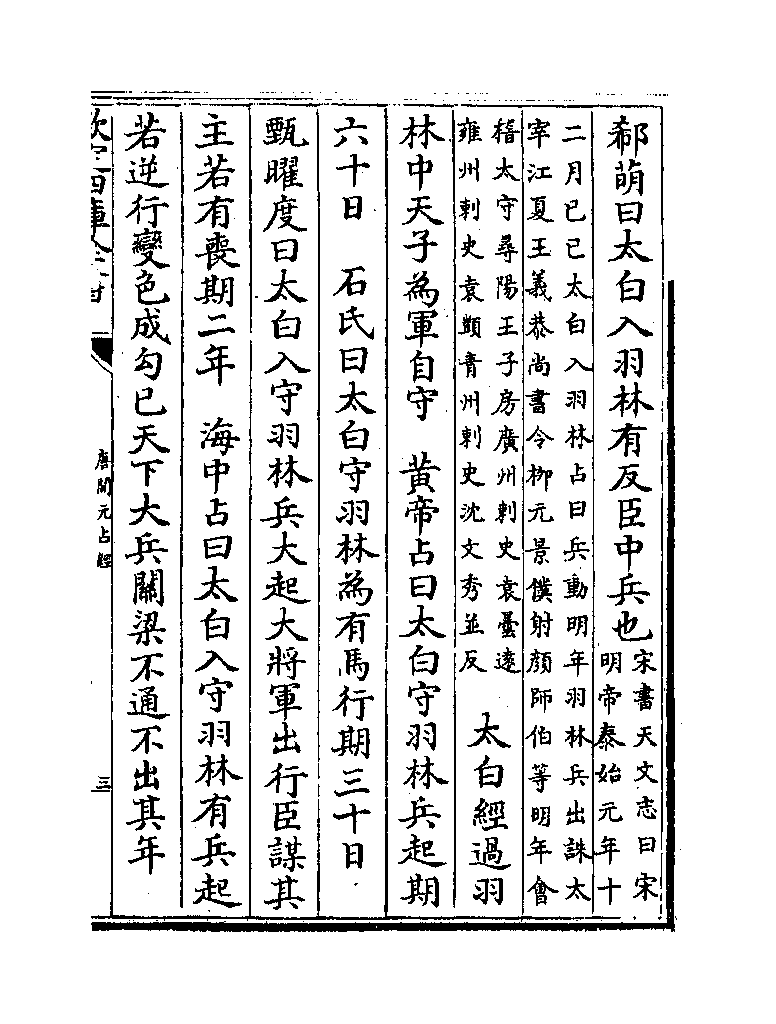 郗萌曰太白入羽林有反臣中兵也
宋書天文志曰宋
明帝泰始元年十
二月已已太白入羽林占曰兵動明年羽林兵出誅太
宰江夏王義恭尚書令栁元景僕射顔師伯等明年會
稽太守尋陽王子房廣州刺史袁曇逺
雍州刺史袁顗青州刺史沈文秀並反
太白經過羽
林中天子為軍自守　黄帝占曰太白守羽林兵起期
六十日　石氏曰太白守羽林為有馬行期三十日
甄曜度曰太白入守羽林兵大起大將軍出行臣謀其
主若有喪期二年　海中占曰太白入守羽林有兵起
若逆行變色成勾已天下大兵關梁不通不出其年
唐開元占經
三